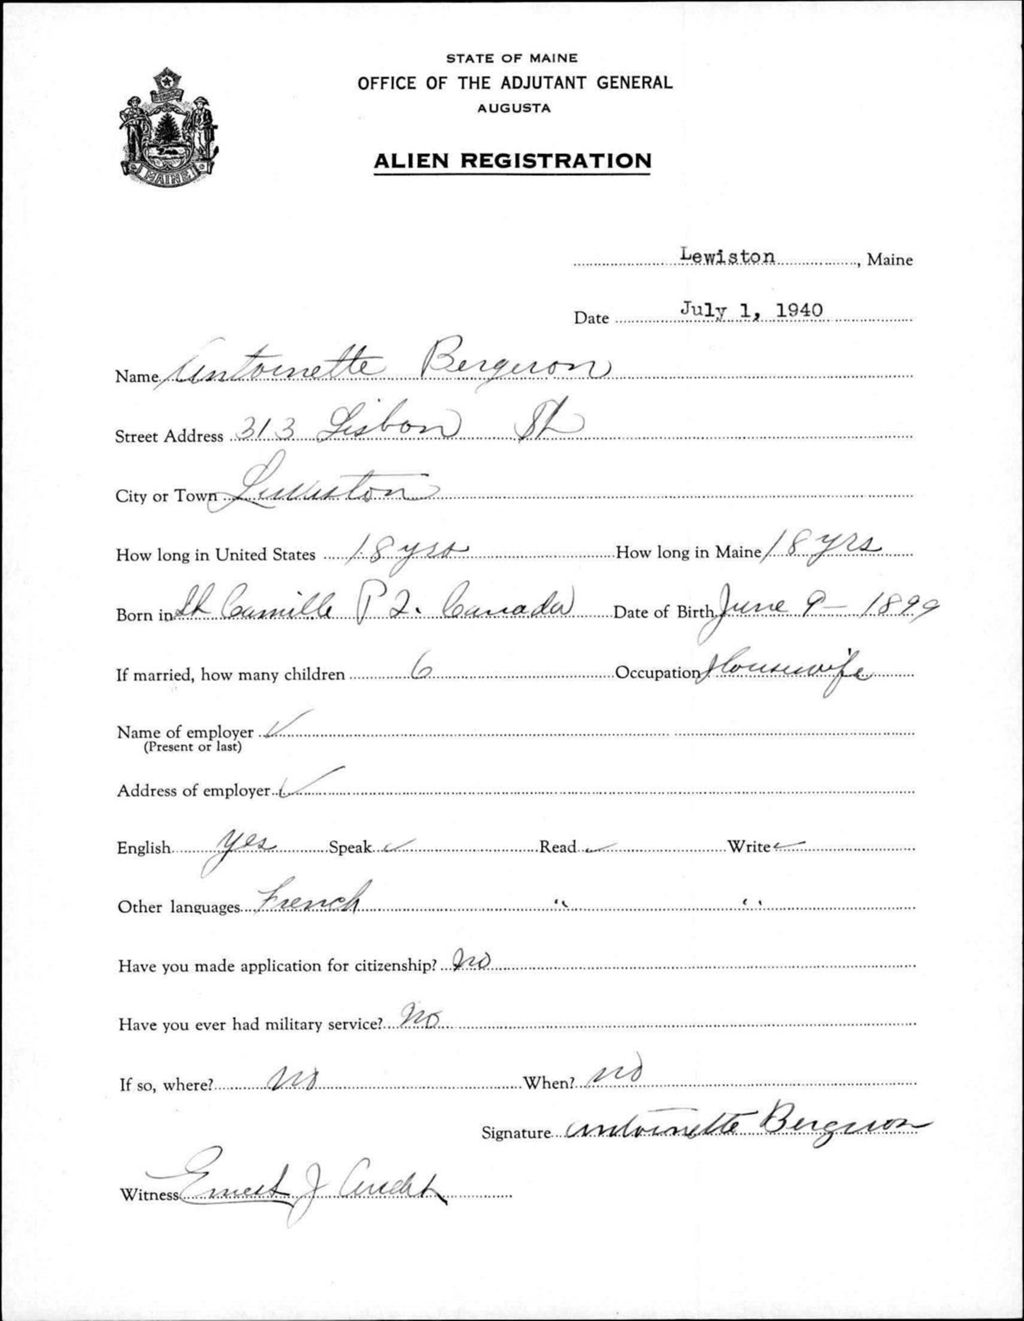 STATE OF MAINE
OFFICE OF THE ADJUTANT GENERAL
AUGUSTA
ALIEN REGISTRATION
MAINE
Lewiston, Maine
Date July 1, 1940
Name Antoinette Bergeron
Street Address 313 Lisbon St
City or Town Lewiston
How long in United States 18 yrs How long in Maine 18 yrs
Born in St Camille P Q. Canada Date of Birth June 9 - 1899
If married, how many children 6 Occupation Housewife
Name of employer ✓
(Present or last)
Address of employer ✓
English yes Speak ✓ Read ✓ Write ✓
Other languages French " "
Have you made application for citizenship? No
Have you ever had military service? No
If so, where? no When? no
Signature Antoinette Bergeron
Witness Ernest J Audet